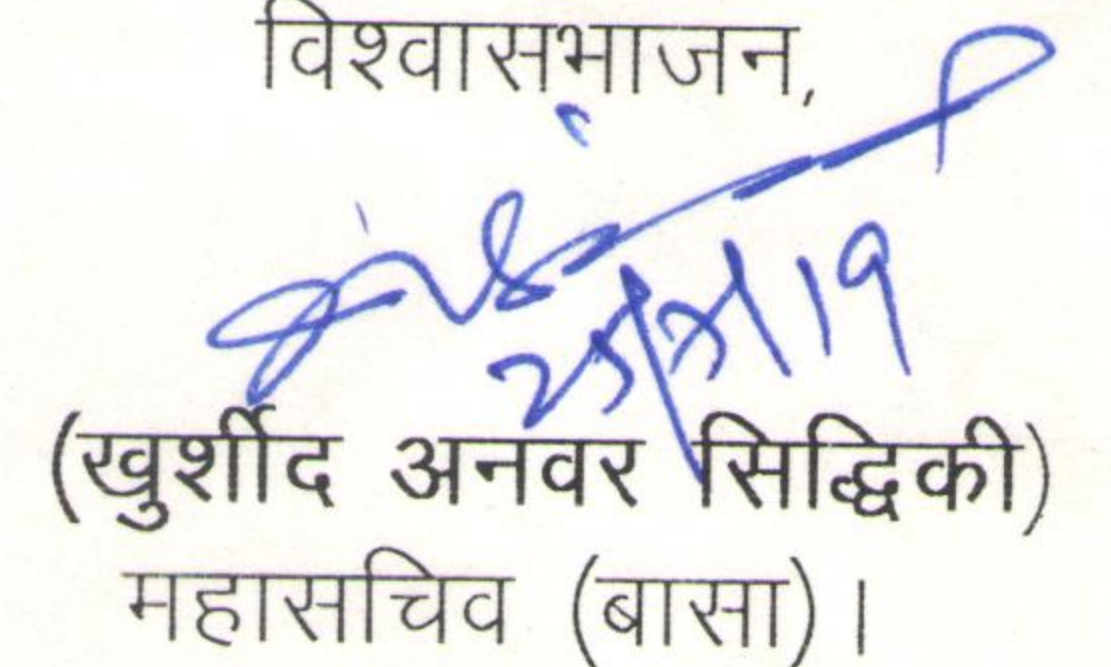 विश्वासभाजन,
(खुर्शीद अनवर सिद्धिकी)
महासचिव (बासा)।